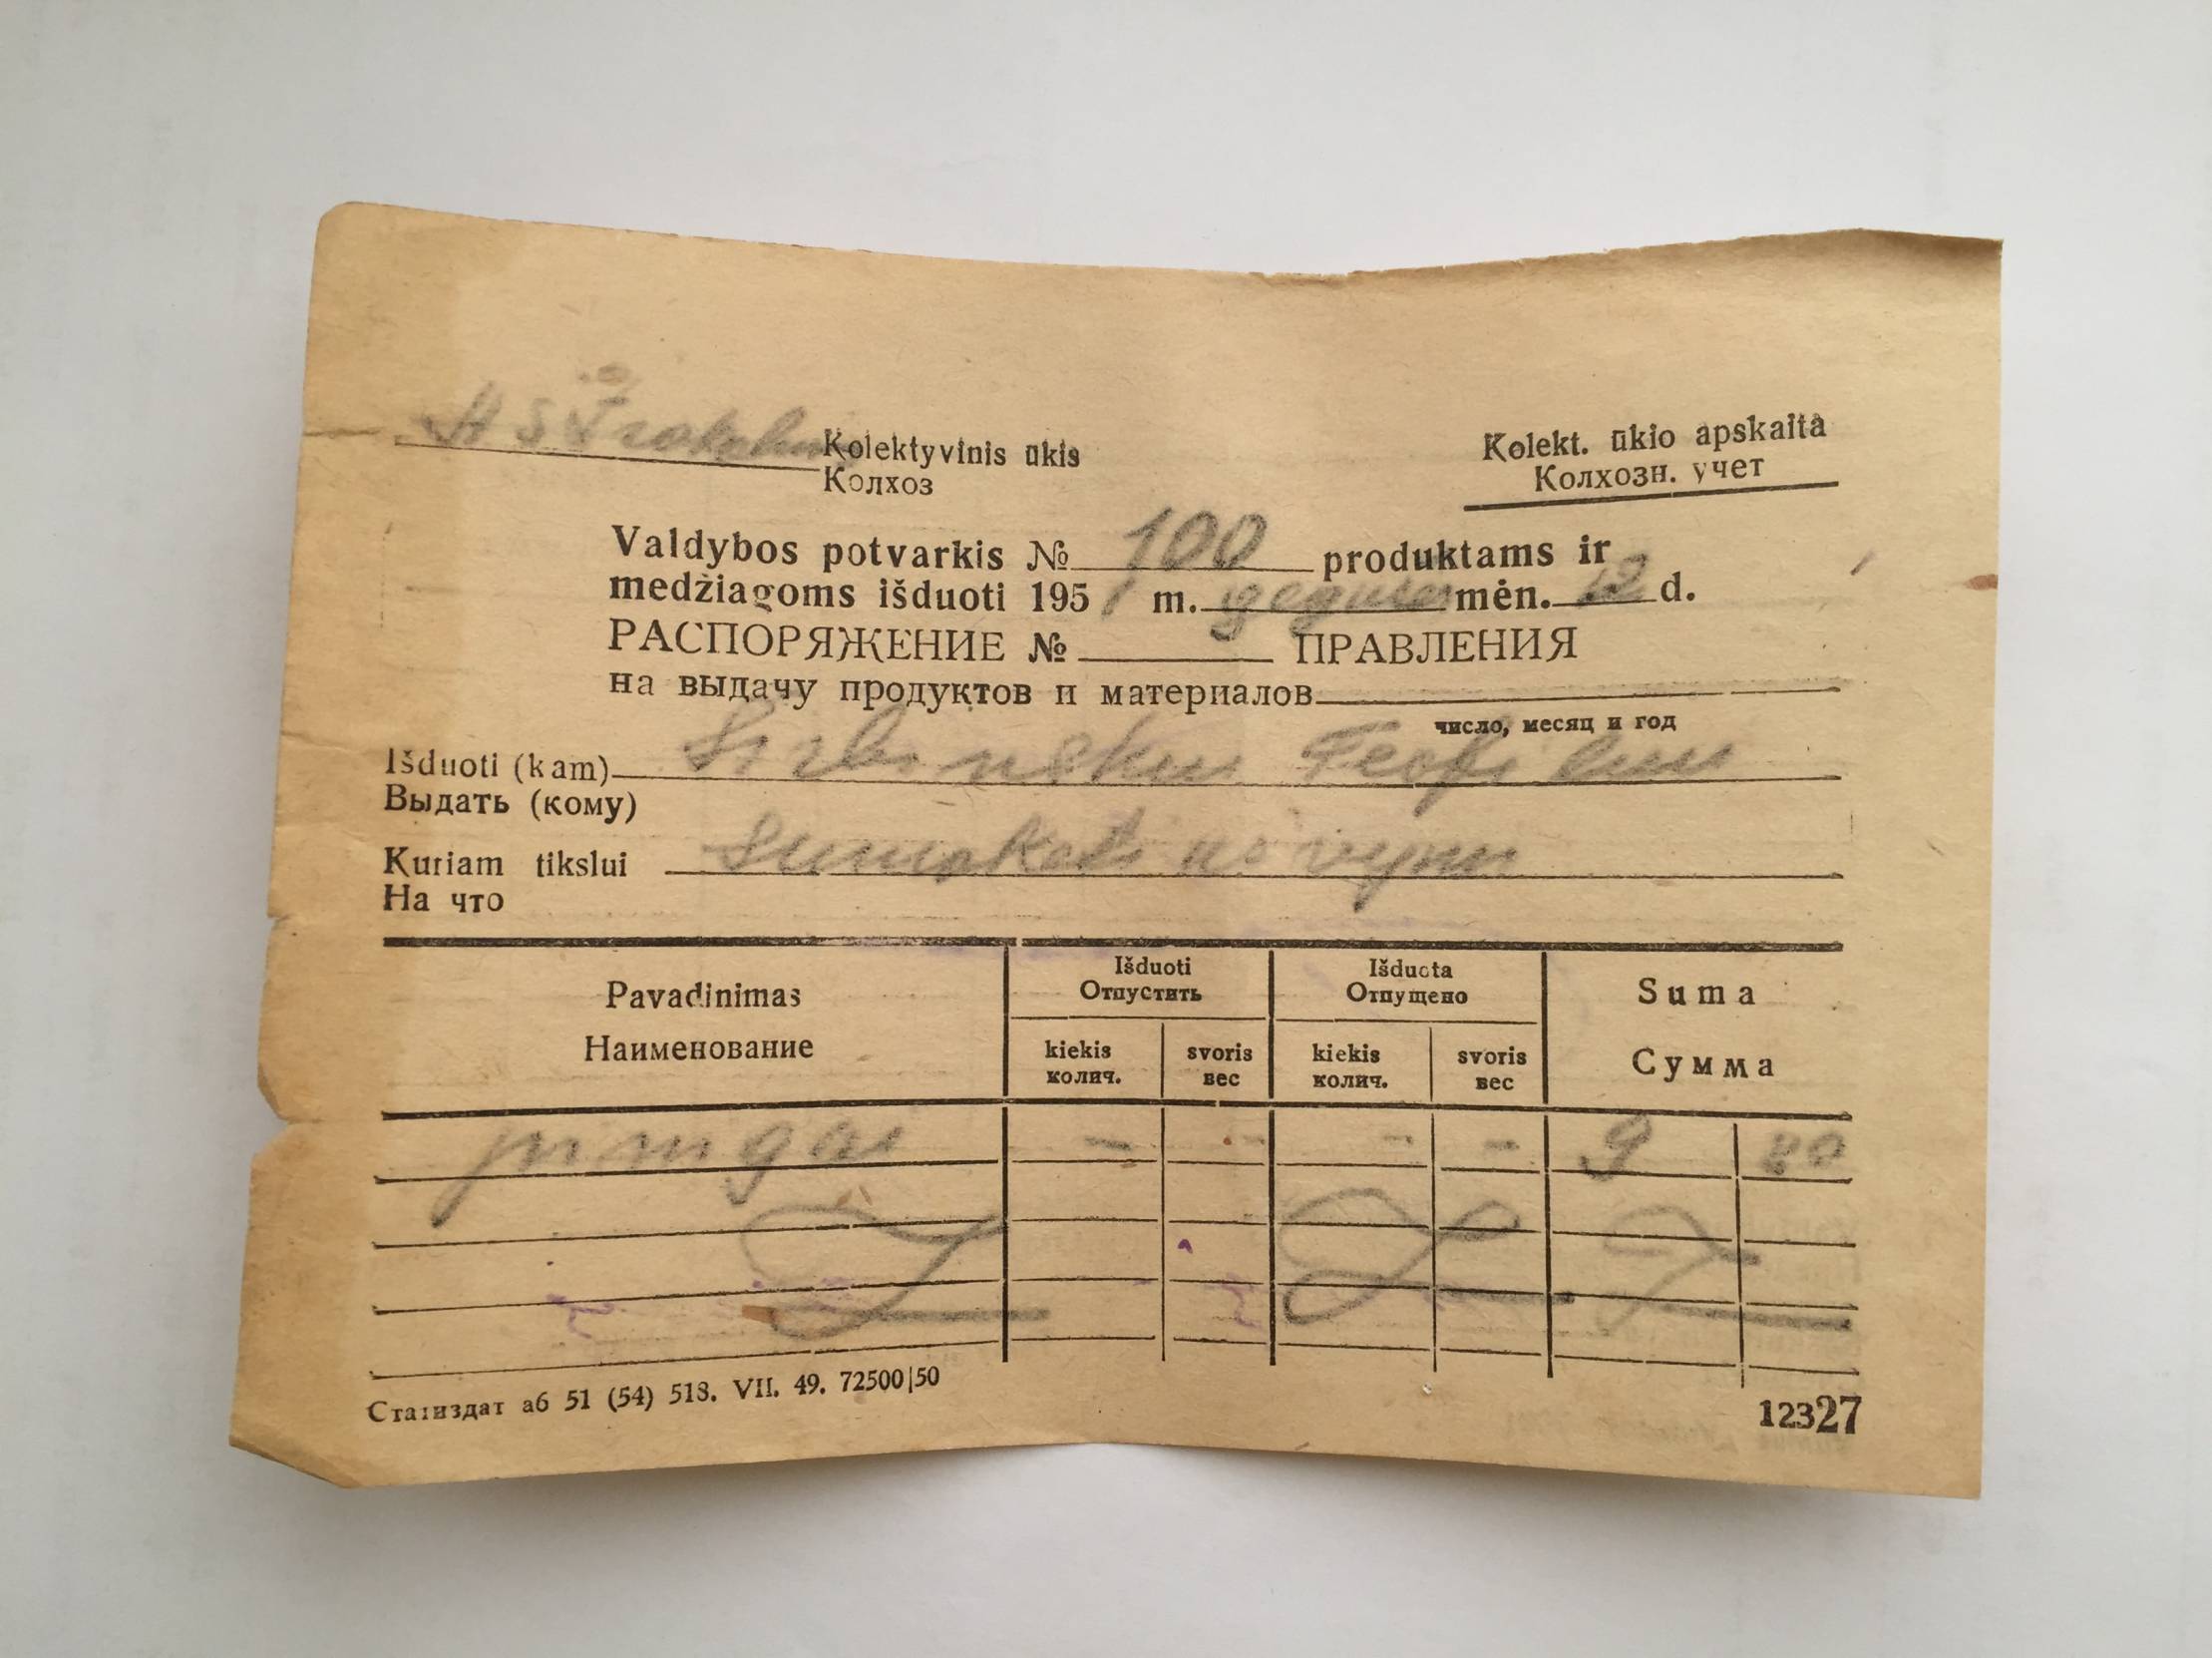 Kolektyvinis ūkis
Колхоз
Kolekt. ūkio apskaita
Колхозн. учет
Valdybos potvarkis № 100 produktams ir
medžiagoms išduoti 1951 m. gegužės mėn. 12 d.
РАСПОРЯЖЕНИЕ № ПРАВЛЕНИЯ
на выдачу продуктов и материалов
число, месяц и год
Išduoti (kam)
Выдать (кому)
Kuriam tikslui Sumokėti
На что
Pavadinimas
Наименование
Išduoti
Отпустить
Išduota
Отпущено
Suma
Сумма
kiekis svoris kiekis svoris
колич. вес колич. вес
pinigai - - - - 9 80
Статиздат аб 51 (54) 518. VII. 49. 72500|50
12327